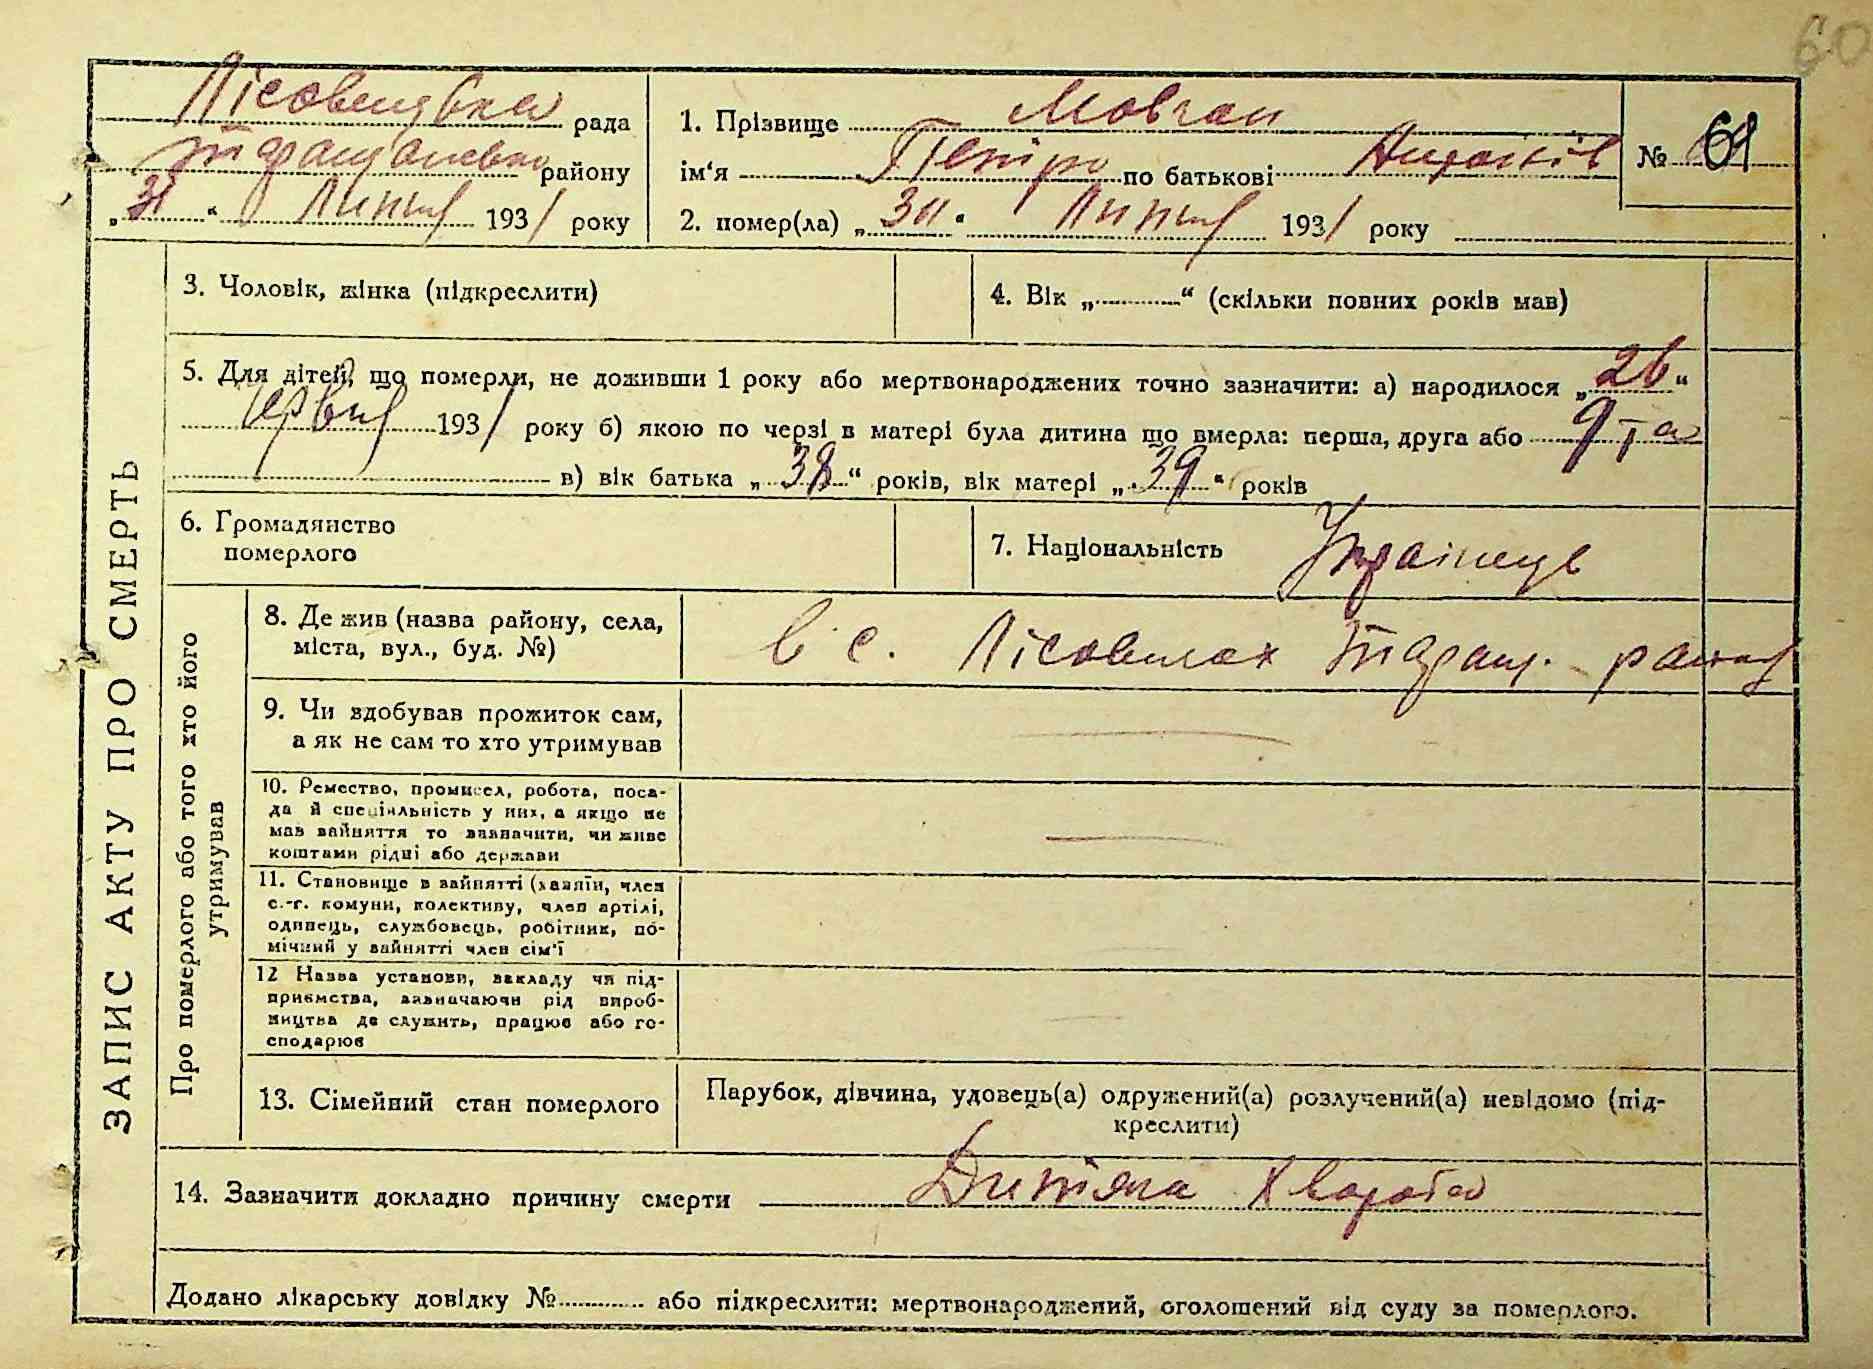 60
Лісовецька рада
Таращанського району
„31“ Липня 1931 року
1. Прізвище Мовчан
ім‘я Петро по батькові
№ 61
2. помер(ла) „30“ Липня 1931 року
ЗАПИС АКТУ ПРО СМЕРТЬ
3. Чоловік, жінка (підкреслити)
4. Вік „ “ (скільки повних років мав)
5. Для дітей, що померли, не доживши 1 року або мертвонароджених точно зазначити: а) народилося „26“
Червня 1931 року б) якою по черзі в матері була дитина що вмерла: перша, друга або 9 та
в) вік батька „38“ років, вік матері „39“ років
6. Громадянство
померлого
7. Національність Українець
Про померлого або того хто його
утримував
8. Де жив (назва району, села,
міста, вул., буд. №)
в с. Лісовичах Таращ. району
9. Чи здобував прожиток сам,
а як не сам то хто утримував
10. Ремество, промисел, робота, поса-
да й спеціяльність у них, а якщо не
мав зайняття то зазначити, чи живе
коштами рідні або держави
11. Становище в зайнятті (хазяїн, член
с.-г. комуни, колективу, член артілі,
одинець, службовець, робітник, по-
мічний у зайнятті член сім‘ї
12 Назва установи, закладу чи під-
приємства, зазначаючи рід вироб-
ництва де служить, працює або го-
сподарює
13. Сімейний стан померлого
Парубок, дівчина, удовець(а) одружений(а) розлучений(а) невідомо (під-
креслити)
14. Зазначити докладно причину смерти Дитяча хвороба
Додано лікарську довідку № або підкреслити: мертвонароджений, оголошений від суду за померлого.